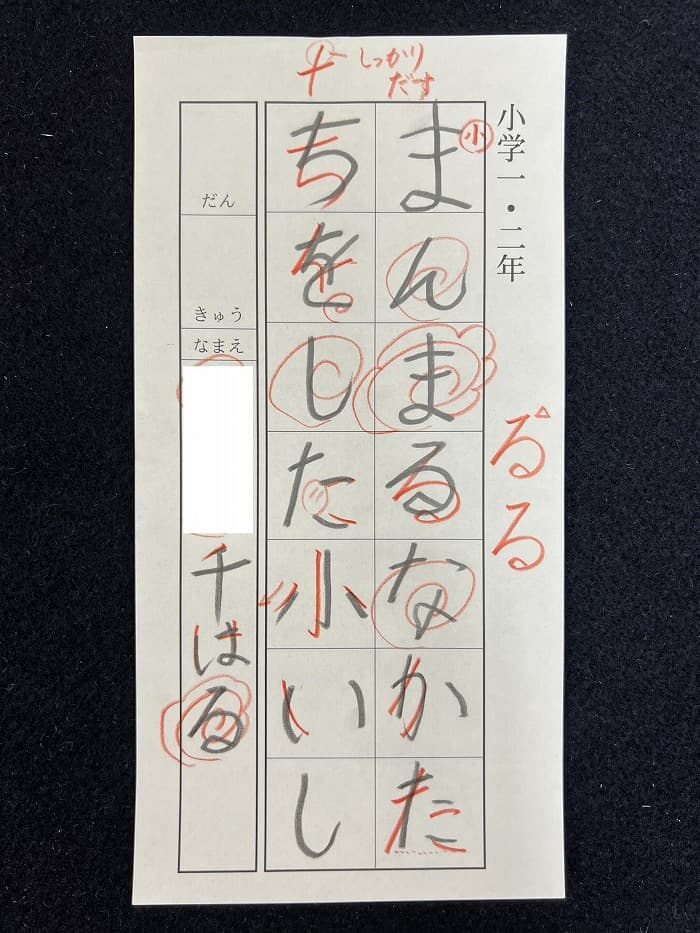 小学一・二年
るる
しっかり
だす
小
まんまるなかた
ちをした小いし
だん
きゅう
なまえ
千はる